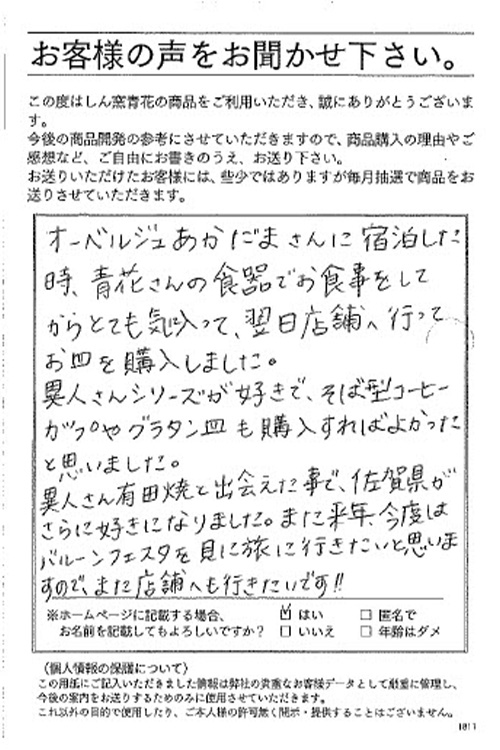 お客様の声をお聞かせ下さい。
この度はしん窯青花の商品をご利用いただき、誠にありがとうございま
す。
今後の商品開発の参考にさせていただきますので、商品購入の理由やご
感想など、ご自由にお書きのうえ、お送り下さい。
お送りいただけたお客様には、些少ではありますが毎月抽選で商品をお
送りさせていただきます。
オーベルジュあかだまさんに宿泊した
時、青花さんの食器でお食事をして
からとても気入って、翌日店舗へ行って
お皿を購入しました。
異人さんシリーズが好きで、そば型コーヒー
カップやグラタン皿も購入すればよかった
と思いました。
異人さん有田焼と出会えた事で、佐賀県が
さらに好きになりました。また来年、今度は
バルーンフェスタを見に旅に行きたいと思いま
すので、また店舗へも行きたいです!!
※ホームページに記載する場合、 ☑ はい □ 匿名で
お名前を記載してもよろしいですか? □ いいえ □ 年齢はダメ
（個人情報の保護について）
この用紙にご記入いただきました情報は弊社の貴重なお客様データとして厳重に管理し、
今後の案内をお送りするためのみに使用させていただきます。
これ以外の目的で使用したり、ご本人様の許可無く開示・提供することはございません。
1811